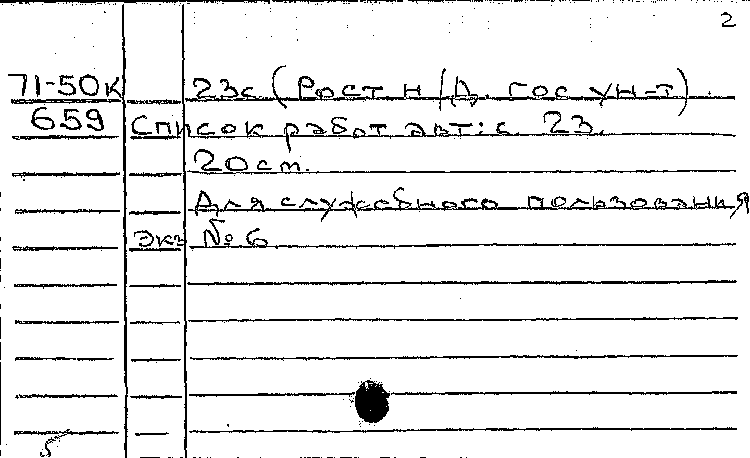 2
71-50к 23с (Рост н/Д. гос ун-т).
659 Список работ авт: с. 23.
20 ст.
Для служебного пользования
Экз № 6